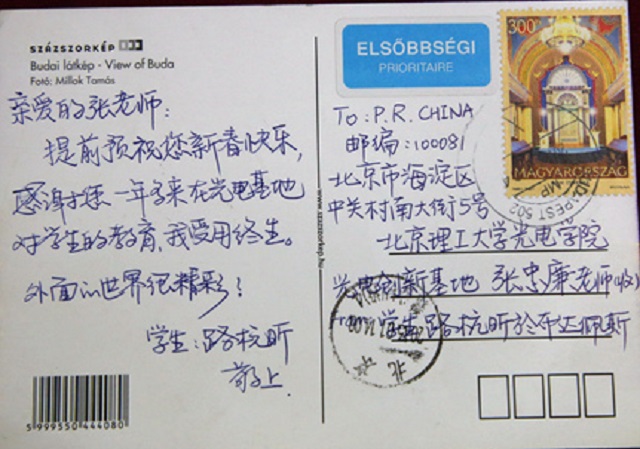 SZÁZSZORKÉP
Budai látkép - View of Buda
Fotó: Millok Tamás
亲爱的张老师:
提前预祝您新春快乐,
感谢您一年多来在光电基地
对学生的教育,我受用终生。
外面的世界很精彩!
学生:路杭昕
敬上.
5 999550 444080
www.szazszorkep.hu
ELSŐBBSÉGI
PRIORITAIRE
300
MAGYARORSZÁG
BUDAPEST 502
To: P.R. CHINA
邮编:100081
北京市海淀区
中关村南大街5号
北京理工大学光电学院
光电创新基地 张忠廉老师(收)
from 学生 路杭昕於布达佩斯
北京